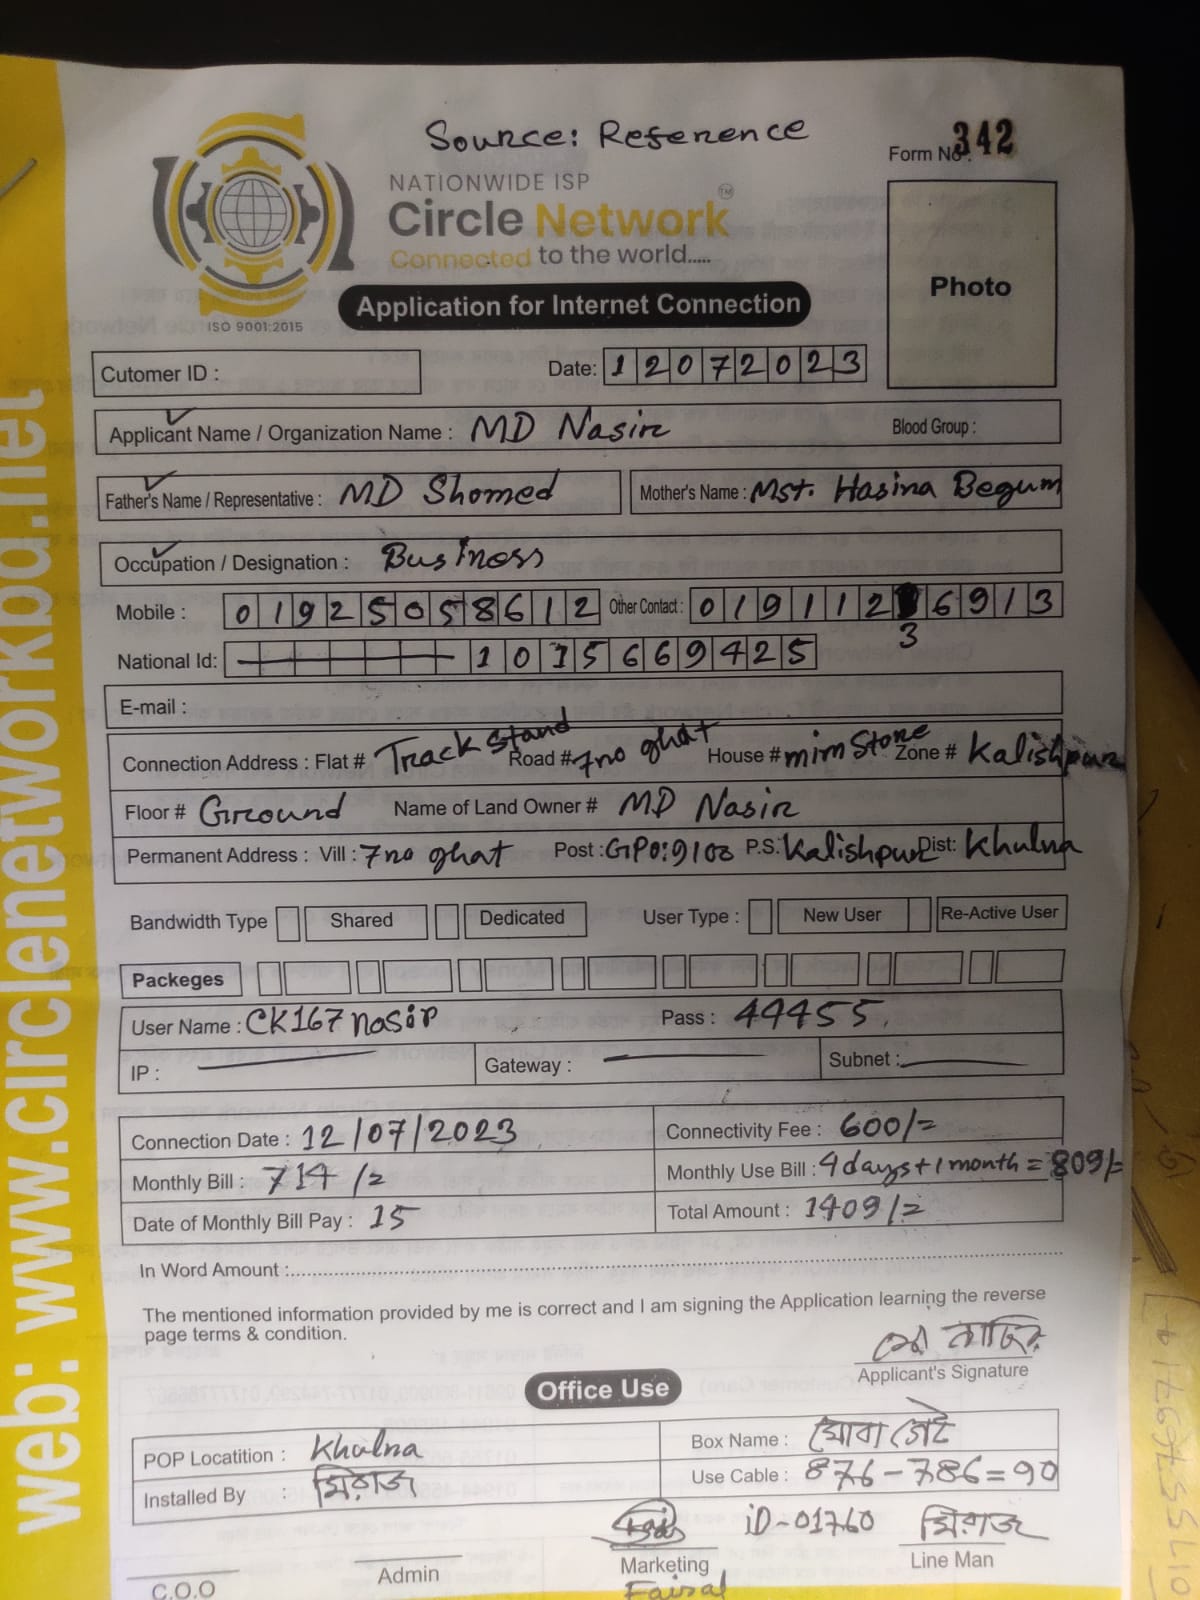 Source: Reference
Form No. 342
NATIONWIDE ISP
Circle Network TM
Connected to the world.....
ISO 9001:2015
Application for Internet Connection
Photo
Cutomer ID :
Date: 12072023
Applicant Name / Organization Name : MD Nasir
Blood Group :
Father's Name / Representative : MD Shomed
Mother's Name : Mst. Hasina Begum
Occupation / Designation : Business
Mobile : 01925058612 Other Contact : 01911236913
National Id: 1015669425
E-mail :
Connection Address : Flat # Track Stand Road # 7no ghat House # mim Store Zone # Kalishpur
Floor # Ground Name of Land Owner # MD Nasir
Permanent Address : Vill : 7no ghat Post : GPO:9100 P.S. Kalishpur Dist: Khulna
Bandwidth Type Shared Dedicated User Type : New User Re-Active User
Packeges
User Name : CK167nasir Pass : 44455
IP : Gateway : Subnet :
Connection Date : 12/07/2023 Connectivity Fee : 600/=
Monthly Bill : 714/= Monthly Use Bill : 4 days + 1 month = 809/=
Date of Monthly Bill Pay : 15 Total Amount : 1409/=
In Word Amount :
The mentioned information provided by me is correct and I am signing the Application learning the reverse
page terms & condition.
মোঃ নাছির
Applicant's Signature
Office Use
POP Locatition : Khulna Box Name :
Installed By : মিরাজ Use Cable : 876-786=90
iD-01760 মিরাজ
C.O.O Admin Marketing Line Man
Faisal
web: www.circlenetworkbd.net